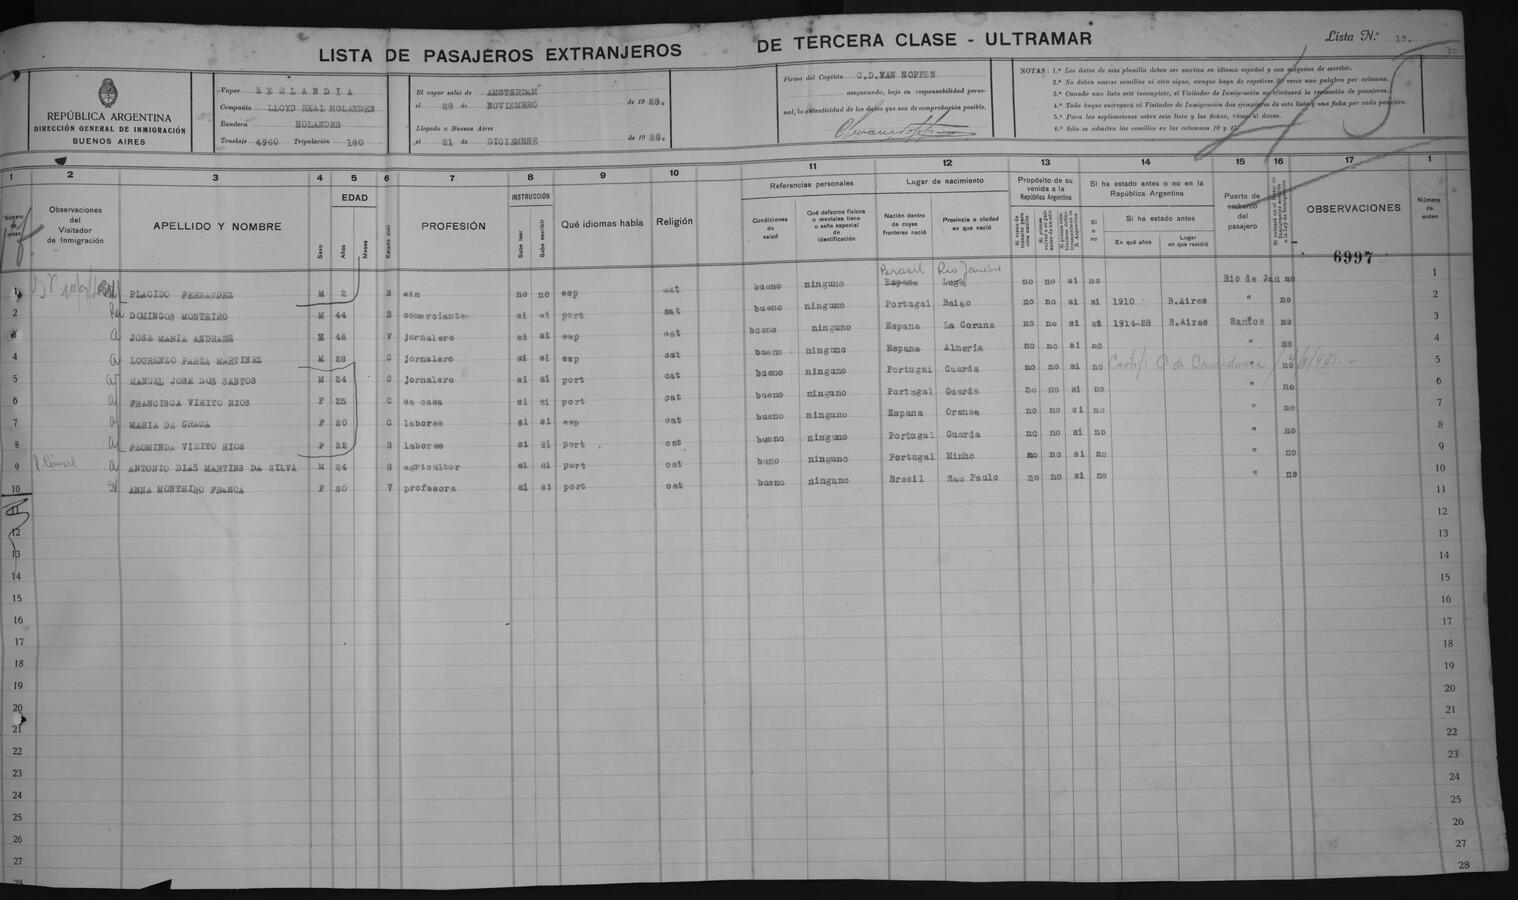 LISTA DE PASAJEROS EXTRANJEROS DE TERCERA CLASE - ULTRAMAR
Lista N.° 12.
REPÚBLICA ARGENTINA
DIRECCIÓN GENERAL DE INMIGRACIÓN
BUENOS AIRES
Vapor ZEELANDIA
Compañía LLOYD REAL HOLANDES
Bandera HOLANDES
Tonelaje 4960 Tripulación 180
El vapor salió de AMSTERDAM
el 28 de NOVIEMBRO de 1928.
Llegado a Buenos Aires
el 21 de DICIEMBRE de 1928.
Firma del Capitán C.D.VAN NOPPEN
asegurando, bajo su responsabilidad perso-
nal, la autenticidad de los datos que son de comprobación posible.
NOTAS: 1.ª Los datos de esta planilla deben ser escritos en idioma español y con máquina de escribir.
2.ª No deben usarse comillas ni otro signo, aunque haya de repetirse 30 veces una palabra por columna.
3.ª Cuando una lista esté incompleta, el Visitador de Inmigración efectuará la rotación de pasajeros.
4.ª Todo buque entregará al Visitador de Inmigración dos ejemplares de esta lista y una ficha por cada pasajero.
5.ª Para las explicaciones sobre esta lista y las fichas, véase al dorso.
6.ª Sólo se admiten las comillas en las columnas 10 y 15.
1 2 3 4 5 6 7 8 9 10 11 12 13 14 15 16 17 1
Número de orden
Observaciones del Visitador de Inmigración
APELLIDO Y NOMBRE
Sexo
EDAD
Años
Meses
Estado civil
PROFESIÓN
INSTRUCCIÓN
Sabe leer
Sabe escribir
Qué idiomas habla
Religión
Referencias personales
Condiciones de salud
Qué defectos físicos o mentales tiene o seña especial de identificación
Lugar de nacimiento
Nación dentro de cuyas fronteras nació
Provincia o ciudad en que nació
Propósito de su venida a la República Argentina
Si ha estado antes o no en la República Argentina
Si o no
Si ha estado antes
En qué años
Lugar en que residió
Puerto de embarco del pasajero
OBSERVACIONES
Número de orden
6997
Brasil Rio Janeiro
1 PLACIDO FERNANDEZ M 2 S sin no no esp cat bueno ninguno Espana Lugo no no si no Rio de Jan no 1
2 DOMINGOS MONTEIRO M 44 S comerciante si si port cat bueno ninguno Portugal Baiao no no si si 1910 B.Aires " no 2
3 JOSE MARIA ANDRADE M 46 V jornalero si si esp cat bueno ninguno Espana La Coruna no no si si 1914-28 B.Aires Santos no 3
4 LOURENZO PARZA MARTINEZ M 28 C jornalero si si esp cat bueno ninguno Espana Almeria no no si no " no 4
5 MANUEL JOSE DOS SANTOS M 24 C jornalero si si port cat bueno ninguno Portugal Guarda no no si no " no 5
6 FRANCISCA VIEITO RIOS F 25 C sa casa si si port cat bueno ninguno Portugal Guarda no no si no " no 6
7 MARIA DA GRACA F 20 C labores si si esp cat bueno ninguno Espana Orense no no si no " no 7
8 FROMINDA VIEITO RIOS F 22 S labores si si port cat bueno ninguno Portugal Guarda no no si no " no 8
9 ANTONIO DIAS MARTINS DA SILVA M 24 S agricultor si si port cat buno ninguno Portugal Minho no no si no " no 9
10 ANNA MONTEIRO FRANCA F 50 V profesora si si port cat bueno ninguno Bresil Sao Paulo no no si no " no 10
11
12 12
13 13
14 14
15 15
16 16
17 17
18 18
19 19
20 20
21 21
22 22
23 23
24 24
25 25
26 26
27 27
28 28